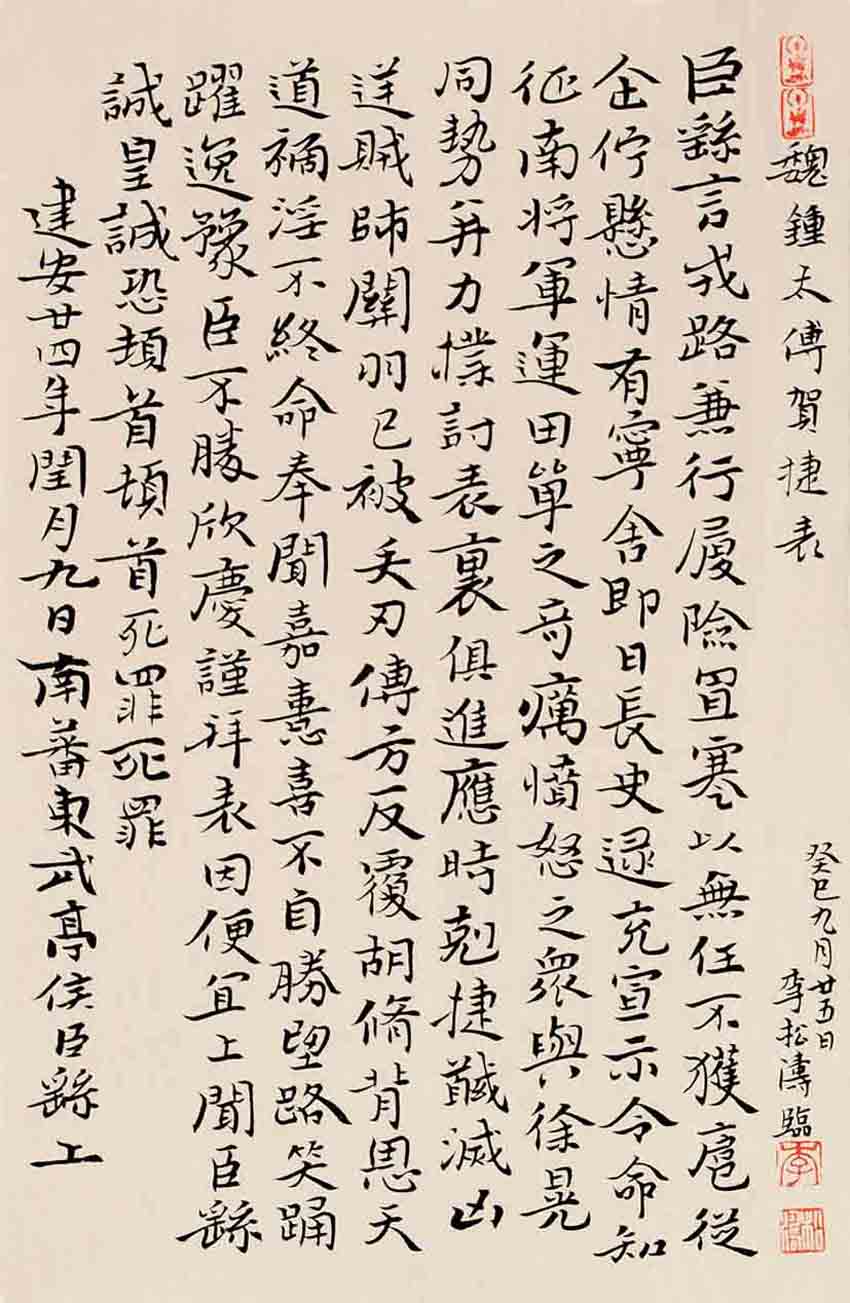 魏鍾太傅賀捷表
癸巳九月廿五日
李松濤臨
臣繇言戎路兼行履險冒寒以無任不獲扈從
企佇懸情有寧舍即日長史逯充宣示令命知
征南將軍運田單之奇癘憤怒之眾與徐晃
同勢并力撲討表裏俱進應時剋捷馘滅凶
逆賊帥關羽已被矢刃傅方反覆胡脩背恩天
道禍淫不終命奉聞嘉憙喜不自勝望路笑踊
躍逸豫臣不勝欣慶謹拜表因便宜上聞臣繇
誠皇誠恐頓首頓首死罪死罪
建安廿四年閏月九日南蕃東武亭侯臣繇上
李